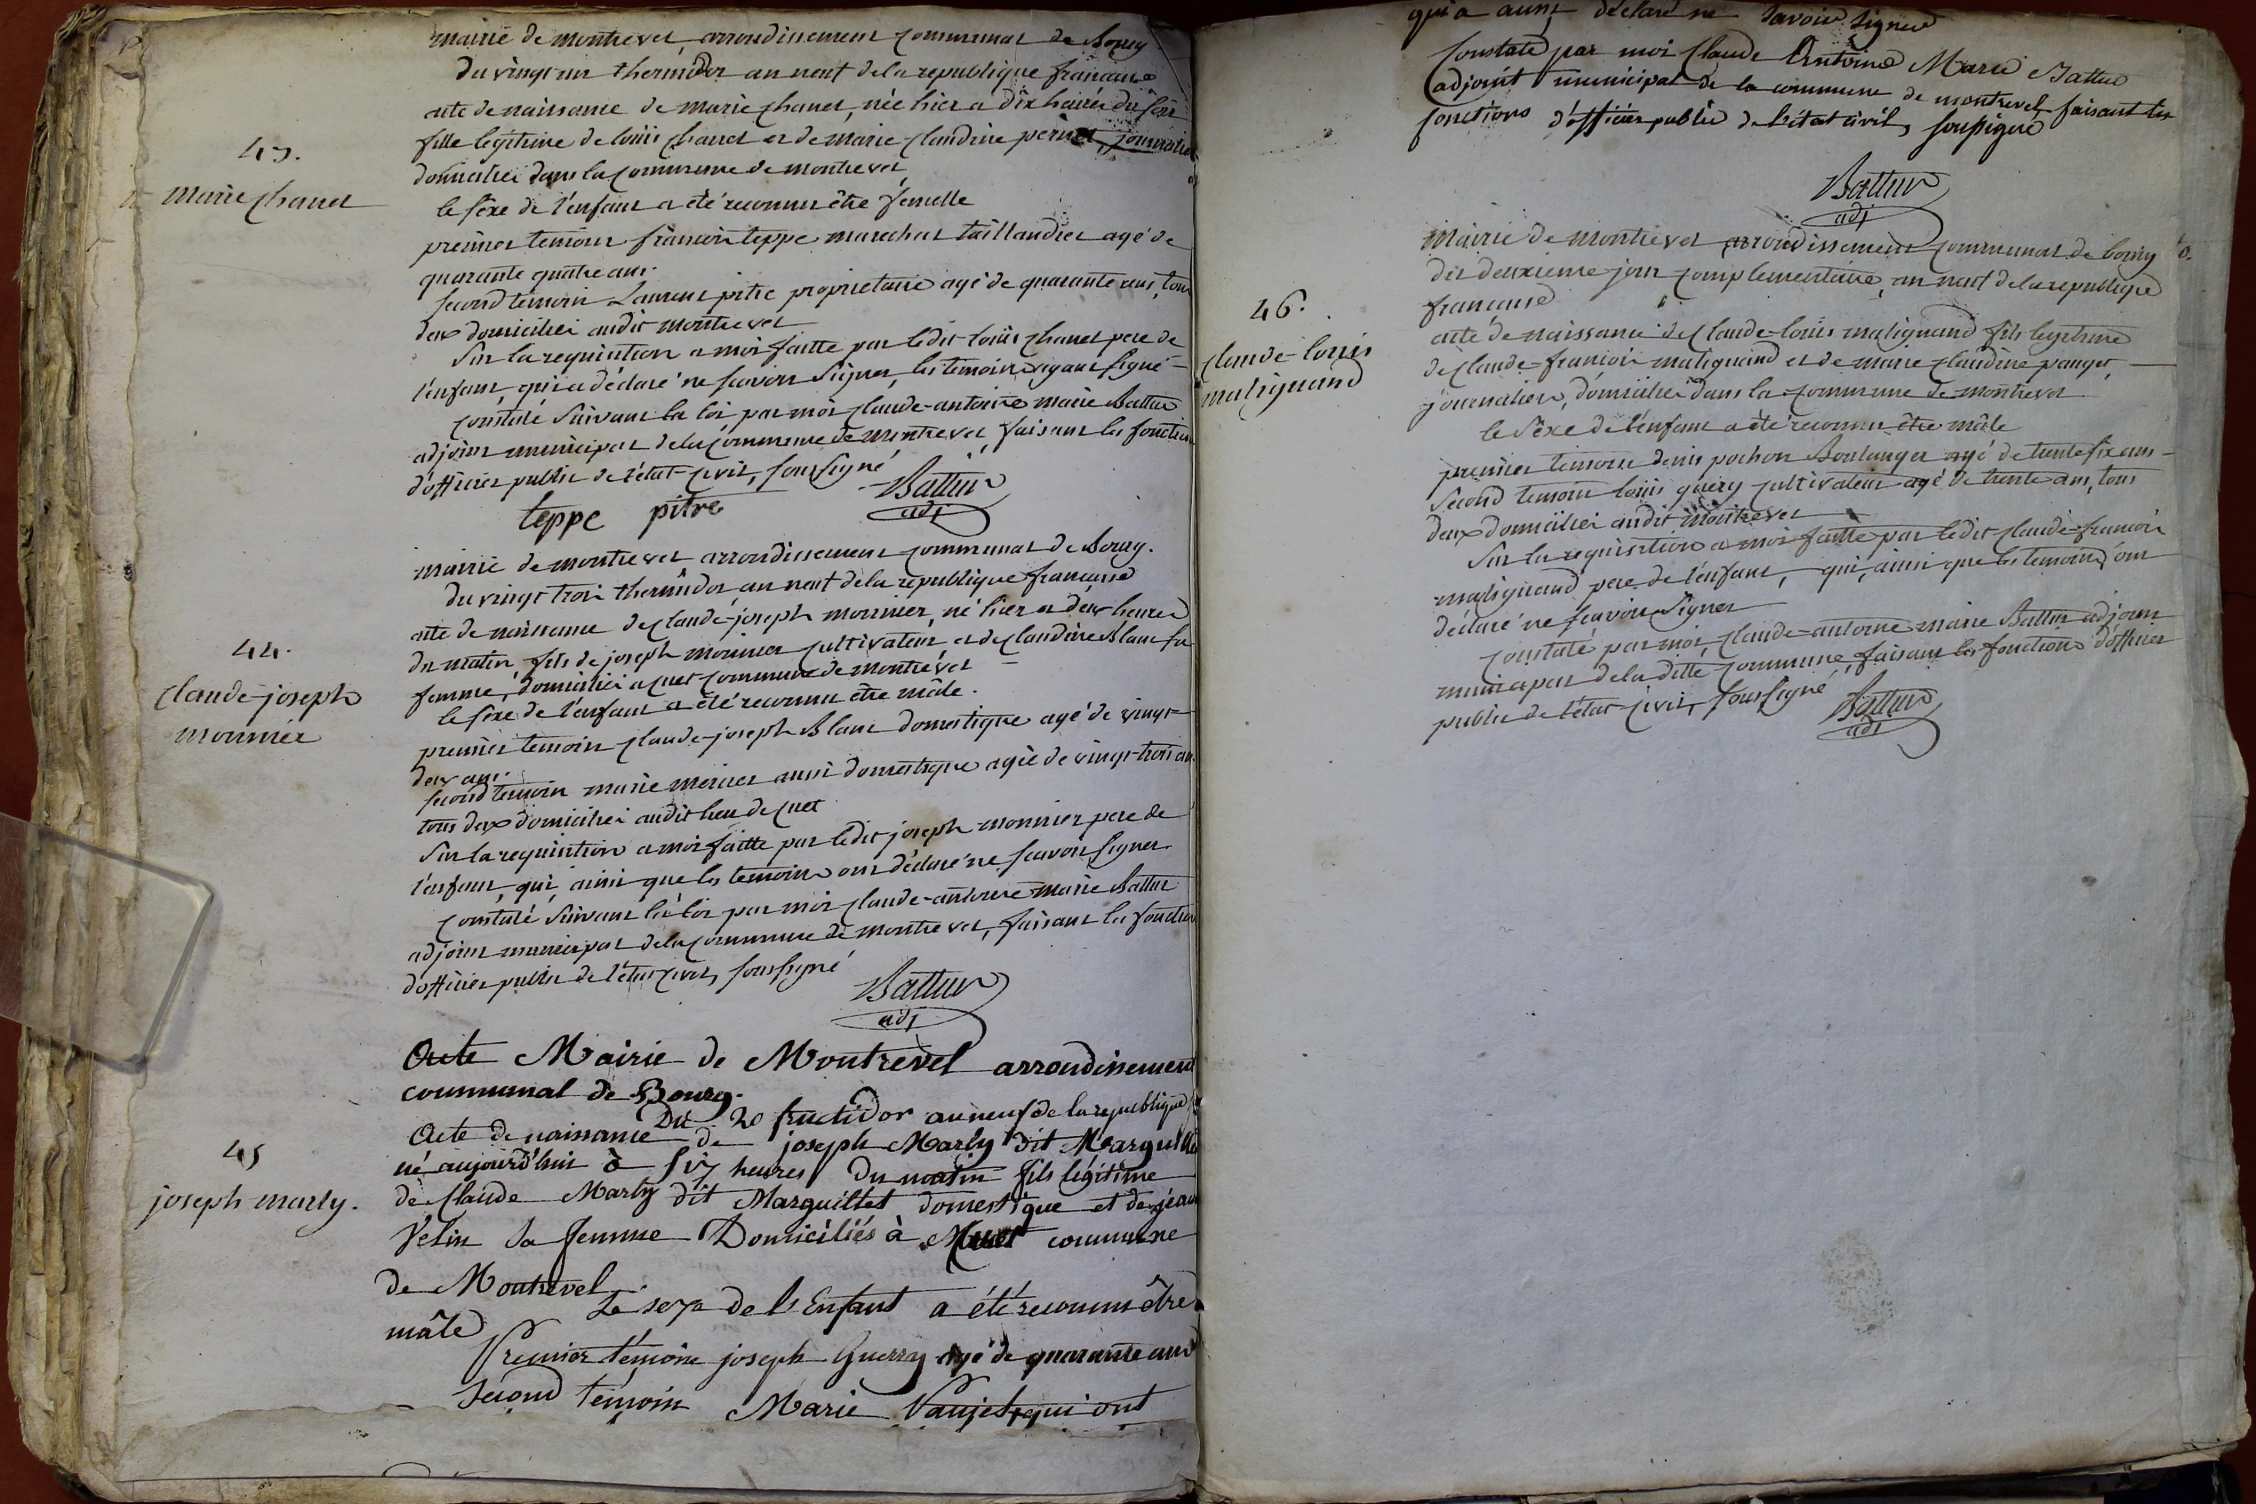 mairie de montrevel, arrondissement communal de Bourg
du vingt un thermidor an neuf de la republique francaise
acte de naissance de marie chanel, née hier a dix heures du soir
fille legitime de louis chanel et de marie claudine perinet, journaliers
domiciliés dans la commune de montrevel,
le sexe de l'enfant a été reconnu être femelle
premier temoin francois teppe marechal taillandier agé de
quarante quatre ans.
second temoin Laurent pitre proprietaire agé de quarante ans, tous
deux domiciliés audit montrevel
Sur la requisition a moi faitte par ledit louis chanel pere de
l'enfant, qui a déclaré ne scavoir signer, les temoins ayant signé
constaté suivant la loi par moi claude-antoine marie Battur
adjoint municipal de la commune de montrevel, faisant les fonctions
d'officier public de l'état-civil, soussigné
teppe pitre Battur
adj
43.
marie chanel
mairie de montrevel arrondissement communal de Bourg.
du vingt trois thermidor an neuf de la republique francaise
acte de naissance de claude-joseph monnier, né hier a deux heures
du matin, fils de joseph monnier cultivateur et de claudine Blanc sa
femme, domiciliés a cuet commune de montrevel
le sexe de l'enfant a été reconnu être mâle.
premier temoin claude-joseph Blanc domestique agé de vingt
deux ans.
second temoin marie mercier aussi domestique agée de vingt-trois ans
tous deux domiciliés audit lieu de cuet
Sur la requisition a moi faitte par ledit joseph monnier pere de
l'enfant, qui, ainsi que les temoins ont déclaré ne scavoir signer.
constaté suivant la loi par moi claude-antoine marie Battur
adjoint municipal de la commune de montrevel, faisant les fonctions
d'officier public de l'état civil, soussigné
Battur
adj
44.
claude-joseph
monnier
Acte Mairie de Montrevel arrondissement
communal de Bourg.
Du 20 fructidor an neuf de la republique
Acte de naissance de joseph Marly dit Marguillet
né aujourd'hui à six heures du matin fils légitime
de Claude Marly dit Marguillet domestique et de jeanne
Velin sa femme Domiciliés à Cuet commune
de Montrevel
Le sexe de l'Enfant a été reconnu être
mâle
Premier témoin joseph Guerry agé de quarante ans
second témoin Marie Vaujet, qui ont
45
joseph marly.
qui a aussi déclaré ne savoir signer
Constaté par moi Claude Antoine Marie Battur
adjoint municipal de la commune de montrevel faisant les
fonctions d'officier public de l'état civil, soussigné
Battur
adj
mairie de montrevel arrondissement communal de bourg
du deuxieme jour complementaire, an neuf de la republique
francaise
acte de naissance de claude-louis malignand fils legitime
de claude-francois malignand et de marie claudine vanget,
journaliers, domiciliés dans la commune de montrevel
le sexe de l'enfant a été reconnu être mâle
premier temoin denis pochon Boulanger agé de trente six ans
second temoin louis guery cultivateur agé de trente ans, tous
deux domiciliés audit montrevel
Sur la requisition a moi faitte par ledit claude-francois
malignand pere de l'enfant, qui, ainsi que les temoins, ont
déclaré ne scavoir signer
constaté par moi, claude-antoine marie Battur adjoint
municipal de la ditte commune, faisant les fonctions d'officier
public de l'état civil, soussigné
Battur
adj
46.
claude-louis
malignand